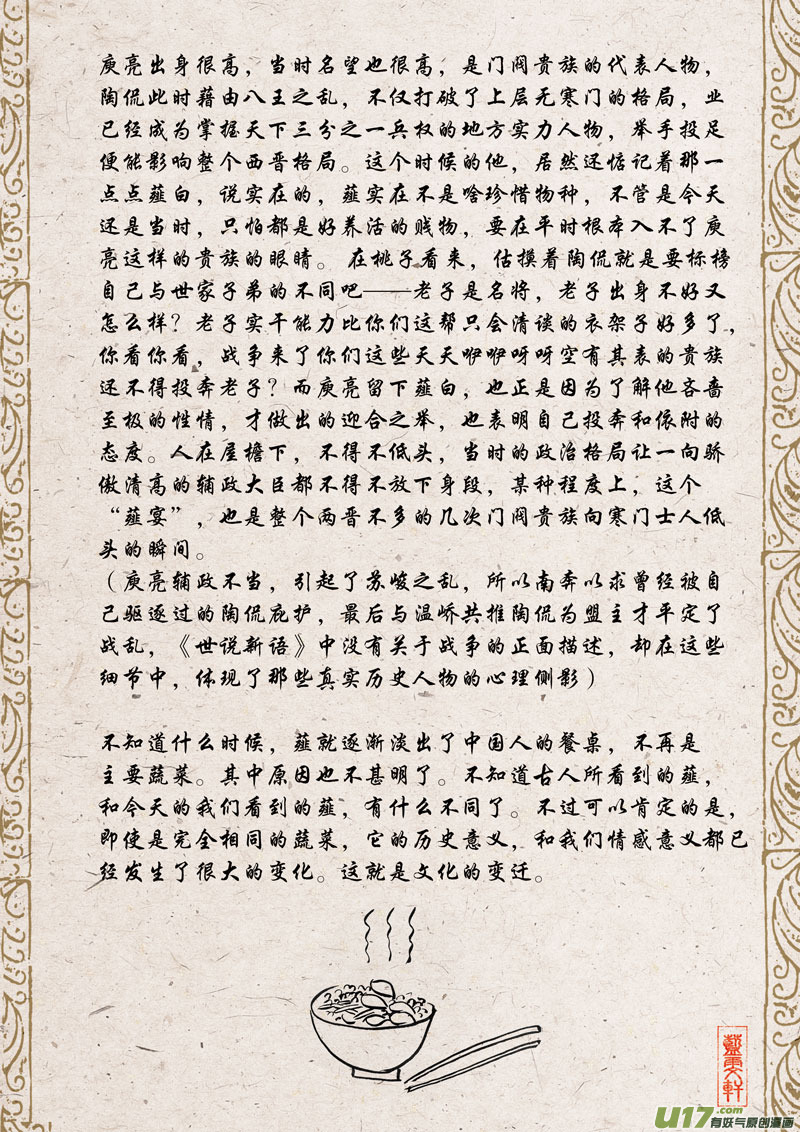 庾亮出身很高，当时名望也很高，是门阀贵族的代表人物，
陶侃此时藉由八王之乱，不仅打破了上层无寒门的格局，业
已经成为掌握天下三分之一兵权的地方实力人物，举手投足
便能影响整个西晋格局。这个时候的他，居然还惦记着那一
点点薤白，说实在的，薤实在不是啥珍惜物种，不管是今天
还是当时，只怕都是好养活的贱物，要在平时根本入不了庾
亮这样的贵族的眼睛。在桃子看来，估摸着陶侃就是要标榜
自己与世家子弟的不同吧——老子是名将，老子出身不好又
怎么样？老子实干能力比你们这帮只会清谈的衣架子好多了，
你看你看，战争来了你们这些天天咿咿呀呀空有其表的贵族
还不得投奔老子？而庾亮留下薤白，也正是因为了解他吝啬
至极的性情，才做出的迎合之举，也表明自己投奔和依附的
态度。人在屋檐下，不得不低头，当时的政治格局让一向骄
傲清高的辅政大臣都不得不放下身段，某种程度上，这个
“薤宴”，也是整个两晋不多的几次门阀贵族向寒门士人低
头的瞬间。
（庾亮辅政不当，引起了苏峻之乱，所以南奔以求曾经被自
己驱逐过的陶侃庇护，最后与温峤共推陶侃为盟主才平定了
战乱，《世说新语》中没有关于战争的正面描述，却在这些
细节中，体现了那些真实历史人物的心理侧影）
不知道什么时候，薤就逐渐淡出了中国人的餐桌，不再是
主要蔬菜。其中原因也不甚明了。不知道古人所看到的薤，
和今天的我们看到的薤，有什么不同了。不过可以肯定的是，
即使是完全相同的蔬菜，它的历史意义，和我们情感意义都已
经发生了很大的变化。这就是文化的变迁。
U17.com
有妖气原创漫画